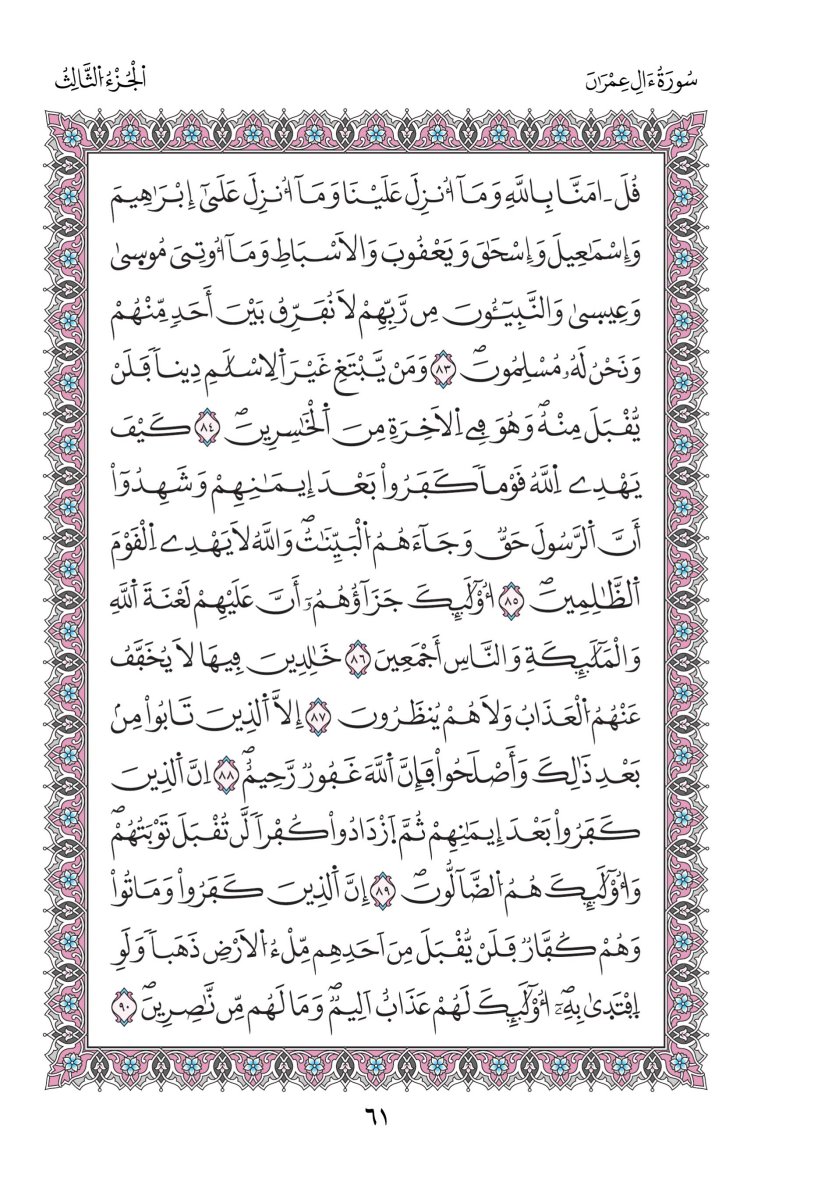 سُورَةُ ءَالِ عِمْرَٰنَ
اَ۬لْجُزْءُ اُ۬لثَّالِثُ
قُلَ ـ امَنَّا بِاللَّهِ وَمَآ أُنزِلَ عَلَيْنَا وَمَآ أُنزِلَ عَلَىٰٓ إِبْرَٰهِيمَ
وَإِسْمَٰعِيلَ وَإِسْحَٰقَ وَيَعْقُوبَ وَالَاسْبَاطِ وَمَآ أُوتِيَ مُوسىٰ
وَعِيسىٰ وَالنَّبِيٓـُٔونَ مِن رَّبِّهِمْ لَا نُفَرِّقُ بَيْنَ أَحَدٖ مِّنْهُمْ
وَنَحْنُ لَهُۥ مُسْلِمُونَۖ ٨٣ وَمَنْ يَّبْتَغِ غَيْرَ اَ۬لِاسْلَٰمِ دِيناٗ فَلَنْ
يُّقْبَلَ مِنْهُۖ وَهُوَ فِے اِ۬لَاخِرَةِ مِنَ اَ۬لْخَٰسِرِينَۖ ٨٤ كَيْفَ
يَهْدِے اِ۬للَّهُ قَوْماٗ كَفَرُواْ بَعْدَ إِيمَٰنِهِمْ وَشَهِدُوٓاْ
أَنَّ اَ۬لرَّسُولَ حَقّٞ وَجَآءَهُمُ اُ۬لْبَيِّنَٰتُۖ وَاللَّهُ لَا يَهْدِے اِ۬لْقَوْمَ
اَ۬لظَّٰلِمِينَۖ ٨٥ أُوْلَٰٓئِكَ جَزَآؤُهُمُۥٓ أَنَّ عَلَيْهِمْ لَعْنَةَ اَ۬للَّهِ
وَالْمَلَٰٓئِكَةِ وَالنَّاسِ أَجْمَعِينَ ٨٦ خَٰلِدِينَ فِيهَا لَا يُخَفَّفُ
عَنْهُمُ اُ۬لْعَذَابُ وَلَا هُمْ يُنظَرُونَ ٨٧ إِلَّا اَ۬لذِينَ تَابُواْ مِنۢ
بَعْدِ ذَٰلِكَ وَأَصْلَحُواْ فَإِنَّ اَ۬للَّهَ غَفُورٞ رَّحِيمٌۖ ٨٨ اِنَّ اَ۬لذِينَ
كَفَرُواْ بَعْدَ إِيمَٰنِهِمْ ثُمَّ اَ۪زْدَادُواْ كُفْراٗ لَّن تُقْبَلَ تَوْبَتُهُمْۖ
وَأُوْلَٰٓئِكَ هُمُ اُ۬لضَّآلُّونَۖ ٨٩ إِنَّ اَ۬لذِينَ كَفَرُواْ وَمَاتُواْ
وَهُمْ كُفَّارٞ فَلَنْ يُّقْبَلَ مِنَ اَحَدِهِم مِّلْءُ اُ۬لَارْضِ ذَهَباٗ وَلَوِ
اِ۪فْتَدىٰ بِهِۦٓۖ أُوْلَٰٓئِكَ لَهُمْ عَذَابٌ اَلِيمٞ وَمَا لَهُم مِّن نَّٰصِرِينَۖ ٩٠
٦١